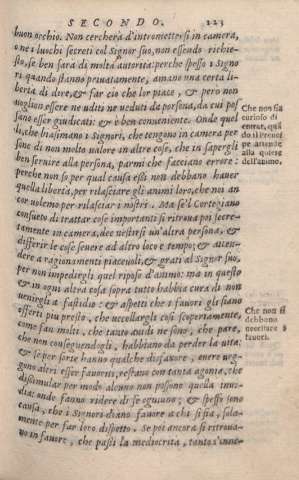 SECONDO. 223
buon occhio. Non cercherà d'intromettersi in camera,
o ne i luochi secreti col Signor suo, non essendo richie-
sto, se ben sarà di molta autorità: perche spesso i Signo
ri quando stanno priuatamente, amano una certa li-
bertà di dire, & far ciò che lor piace, & però non
uogliono essere ne uditi ne ueduti da persona, da cui pos
san esser giudicati: & è ben conueniente. Onde quel
li, che biasimano i Signori, che tengono in camera per
sone di non molto ualore in altre cose, che in sapergli
ben seruire alla persona, parmi che facciano errore:
perche non so per qual causa essi non debbano hauer
quella libertà, per rilasciare gli animi loro, che noi an
cor uolemo per rilasciar i nostri. Ma se'l Cortegiano
consueto di trattar cose importanti si ritroua poi secre-
tamente in camera, dee uestirsi un'altra persona, &
differir le cose seuere ad altro loco e tempo; & atten-
dere a ragionamenti piaceuoli, & grati al Signor suo,
per non impedirgli quel riposo d'animo: ma in questo
& in ogni altra cosa sopra tutto habbia cura di non
uenirgli a fastidio: & aspetti che i fauori gli siano
offerti più presto, che uccellargli così scopertamente,
come fan molti, che tanto auidi ne sono, che pare,
che non conseguendogli, habbiano da perder la uita:
& se per sorte hanno qualche disfauore, ouero ueg-
gono altri esser fauoriti, restano con tanta agonia, che
dissimular per modo alcuno non possono quella inui-
dia: onde fanno ridere di se ognuno; & spesso sono
causa, che i Signori diano fauore a chi si sia, sola-
mente per far loro dispetto. Se poi ancora si ritroua-
no in fauore, che passi la mediocrità, tanto s'inne-
Che non sia
curioso di
entrar, quã
do il Prencipe
attende
alla quiete
dell'animo.
Che non si
debbono
uccellare i
fauori.